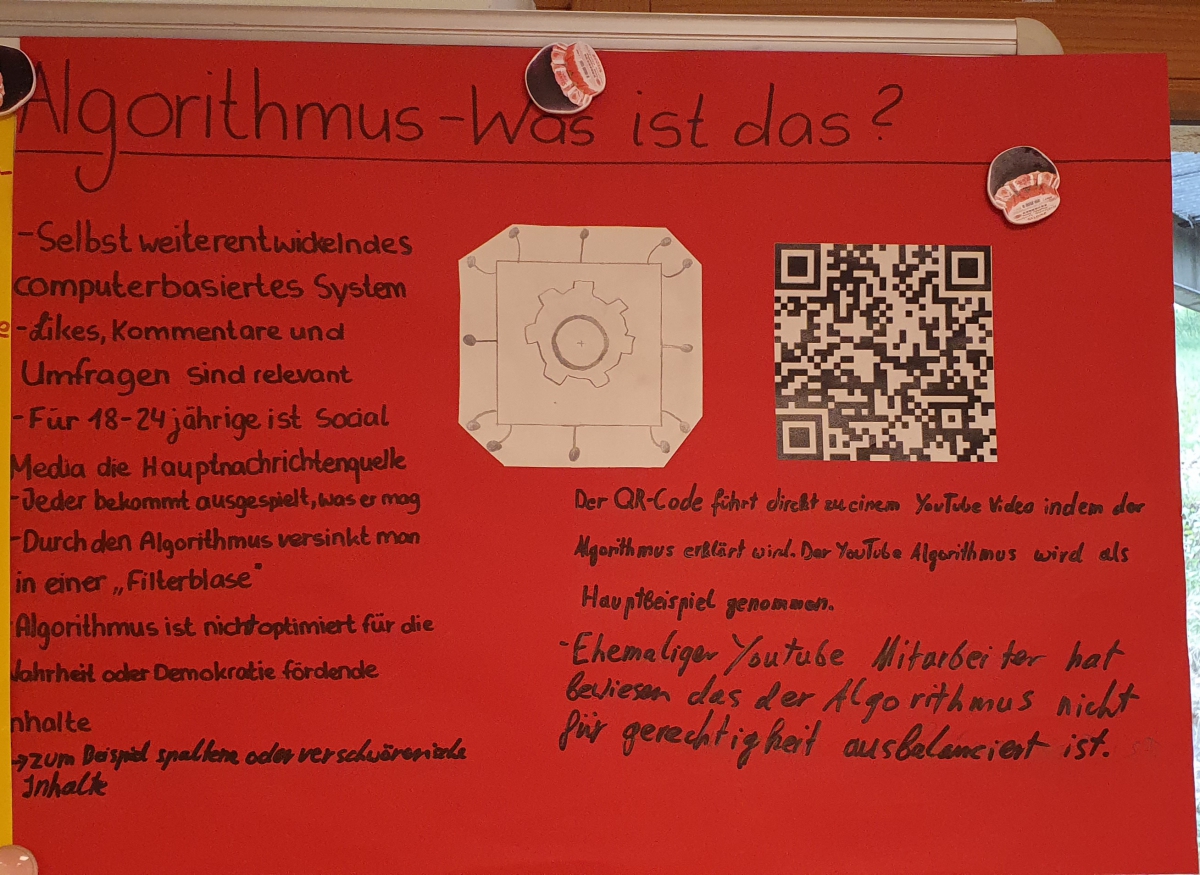 Algorithmus - Was ist das?
- Selbst weiterentwickelndes
computerbasiertes System
- Likes, Kommentare und
Umfragen sind relevant
- Für 18-24 jährige ist Social
Media die Hauptnachrichtenquelle
- Jeder bekommt ausgespielt, was er mag
- Durch den Algorithmus versinkt man
in einer „Filterblase"
Algorithmus ist nicht optimiert für die
Wahrheit oder Demokratie fördende
nhalte
→ zum Beispiel spaltene oder verschwörerische
Inhalte
Der QR-Code führt direkt zu einem YouTube Video indem der
Algorithmus erklärt wird. Der YouTube Algorithmus wird als
Hauptbeispiel genommen.
- Ehemaliger Youtube Mitarbeiter hat
bewiesen das der Algorithmus nicht
für gerechtigkeit ausbalanciert ist.